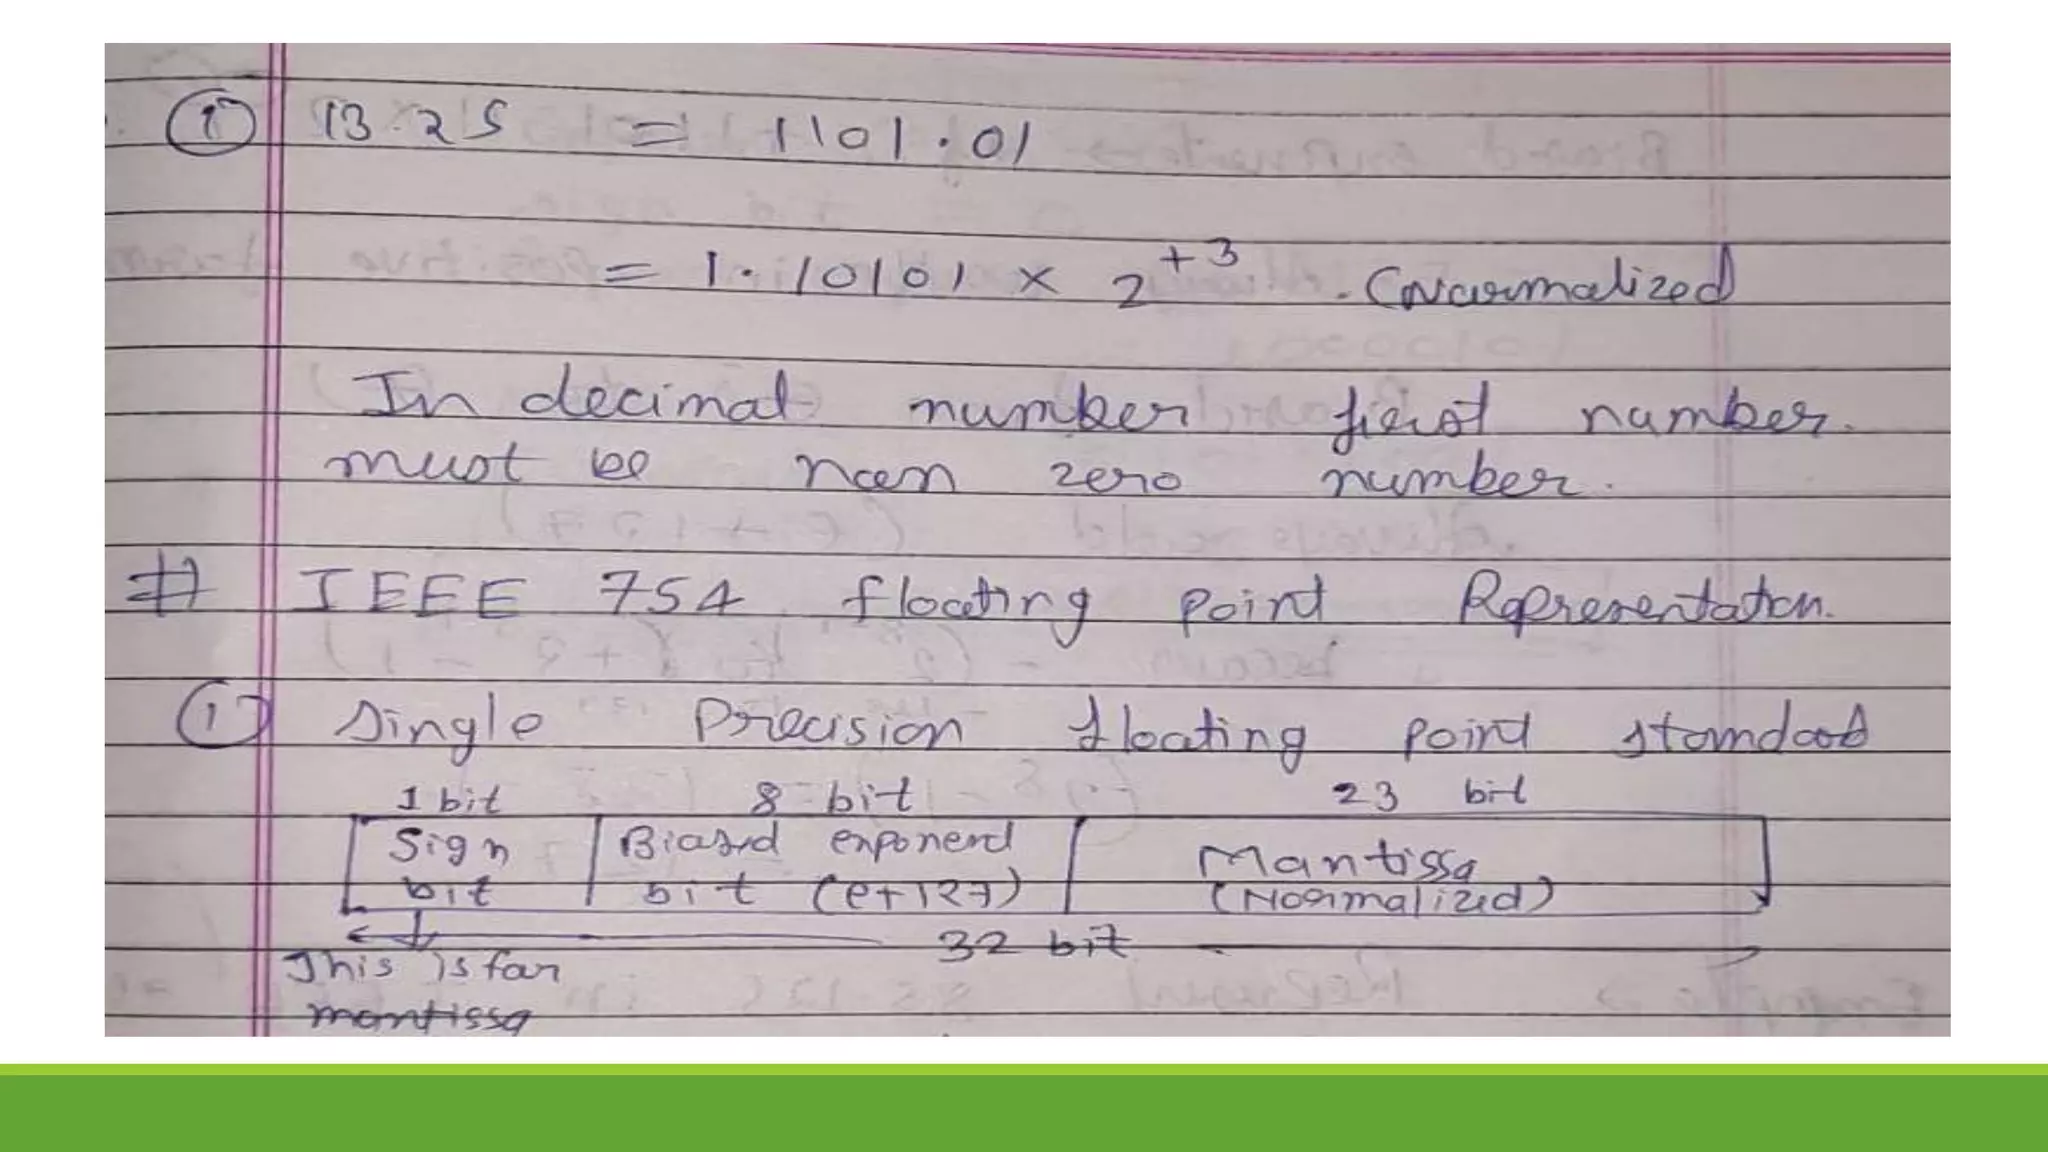 ① 13.25 = 1101.01
= 1.10101 × 2^+3 . (Normalized
In decimal number first number.
must be non zero number.
# IEEE 754 floating point Representation.
① Single Precision floating point standard
1 bit 8 bit 23 bit
Sign bit Biased exponent bit (e+127) Mantissa (Normalized)
32 bit
This is for
mantissa